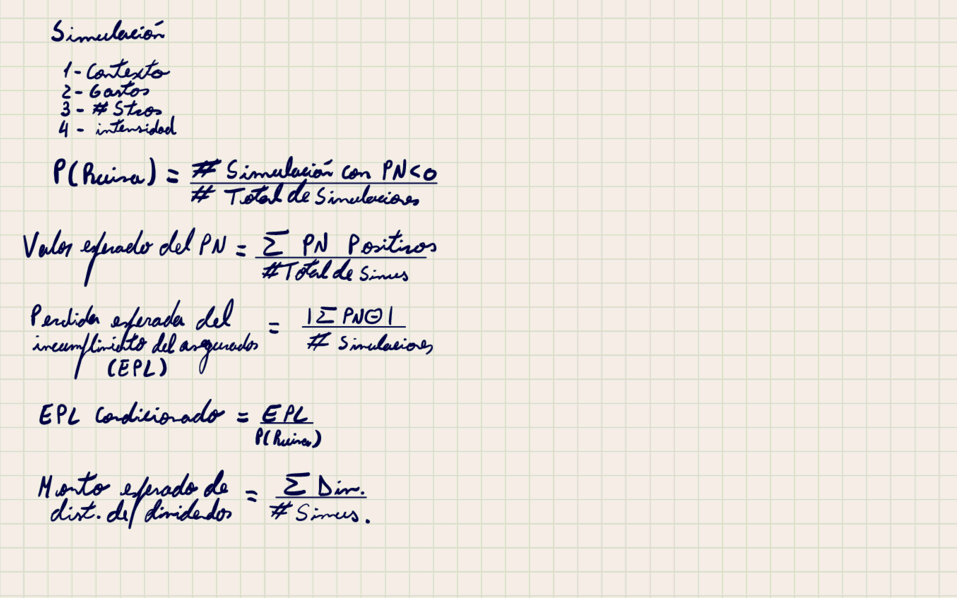 Simulación
1 - Contexto
2 - Gastos
3 - # Stros
4 - intensidad
P(Ruina) = # Simulación con PN<0
# Total de Simulaciones
Valor esperado del PN = Σ PN Positivos
# Total de Simus
Perdida esperada del incumplimiento del asegurados (EPL) = |Σ PN⊖|
# Simulaciones
EPL Condicionado = EPL
P(Ruina)
Monto esperado de dist. de dividendos = Σ Div.
# Simus.